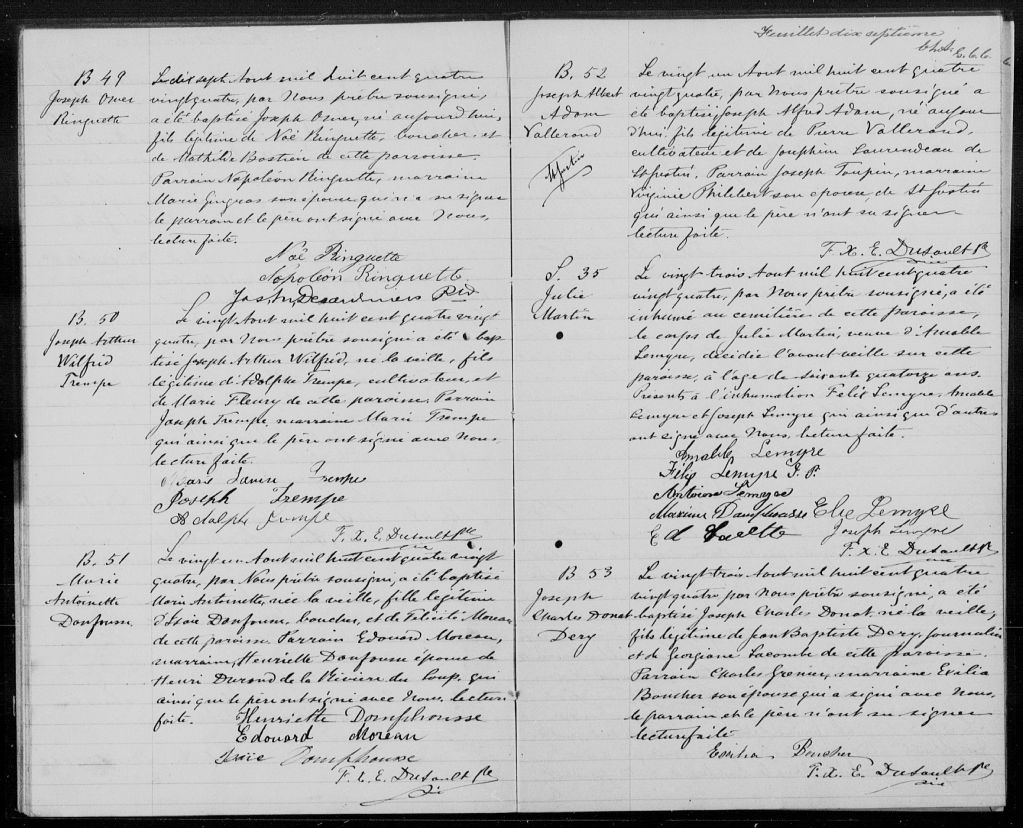 B 49
Joseph Omer
Ringuette
Le dix sept Aout mil huit cent quatre
vingt quatre, par Nous prêtre soussigné,
a été baptisé Joseph Omer, né aujourd'hui,
fils légitime de Noé Ringuette, boucher, et
de Mathilde Bastien de cette paroisse.
Parrain Napoléon Ringuette, marraine
Marie son épouse qui n'a su signer
le parrain et le père ont signé avec Nous,
lecture faite.
Noé Ringuette
Napoléon Ringuette
Jos. Desardiniers
B. 50
Joseph Arthur
Wilfrid
Trempe
Le vingt Aout mil huit cent quatre vingt
quatre, par Nous prêtre soussigné a été bap
tisé Joseph Arthur Wilfrid, né la veille, fils
légitime d'Adolphe Trempe, cultivateur, et
de Marie Fleury de cette paroisse. Parrain
Joseph Trempe, marraine Marie Trempe
qui ainsi que le père ont signé avec Nous
lecture faite.
Marie Trempe
Joseph Trempe
Adolphe Trempe
F. X. E. Dusault Ptre
B. 51
Marie
Antoinette
Donfousse
Le vingt un Aout mil huit cent quatre vingt
quatre, par Nous prêtre soussigné, a été baptisé
Marie Antoinette, née la veille, fille légitime
d'Isaïe Donfousse, boucher, et de Félicité Moreau
de cette paroisse. Parrain Edouard Moreau,
marraine, Henriette Donfousse épouse de
Henri Durand de la Rivière du Loup, qui
ainsi que le père ont signé avec Nous, lecture
faite.
Henriette Domphousse
Edouard Moreau
Isaïe Domphousse
F. X. E. Dusault Ptre
Feuillet dix septième
B. 52
Joseph Albert
Adam
Vallerand
St Justin
Le vingt un Aout mil huit cent quatre
vingt quatre, par Nous prêtre soussigné a
été baptisé, Joseph Alfred Adam, né aujour
d'hui, fils légitime de Pierre Vallerand,
cultivateur et de Josephine Laurendeau de
St Justin. Parrain Joseph Toupin, marraine
Virginie Philibert son épouse, de St Justin
qui ainsi que le père n'ont su signer
lecture faite.
F. X. E. Dusault Ptre
S. 35
Julie
Martin
Le vingt trois Aout mil huit cent quatre
vingt quatre, par Nous prêtre soussigné, a été
inhumé au cemitière de cette paroisse,
le corps de Julie Martin, veuve d'Amable
Lemyre, décédée l'avant veille sur cette
paroisse, à l'age de soixante quatorze ans.
Présents à l'inhumation Félix Lemyre, Amable
Lemyre et Joseph Lemyre qui ainsi que d'autres
ont signé avec Nous, lecture faite.
Amable Lemyre
Félix Lemyre J. P.
Antoine Lemyre
Maxime Damphousse Elie Lemyre
Ed Joseph Lemyre
F. X. E. Dusault Ptre
B 53
Joseph
Charles Donat
Dery
Le vingt trois Aout mil huit cent quatre
vingt quatre par Nous prêtre soussigné, a été
baptisé Joseph Charles Donat né la veille,
fils légitime de Jean Baptiste Dery, journalier
et de Georgiane Lacombe de cette paroisse.
Parrain Charles Grenier, marraine Exilia
Boucher son épouse qui a signé avec Nous,
le parrain et le père n'ont su signer
lecture faite
Boucher
F. X. E. Dusault Ptre